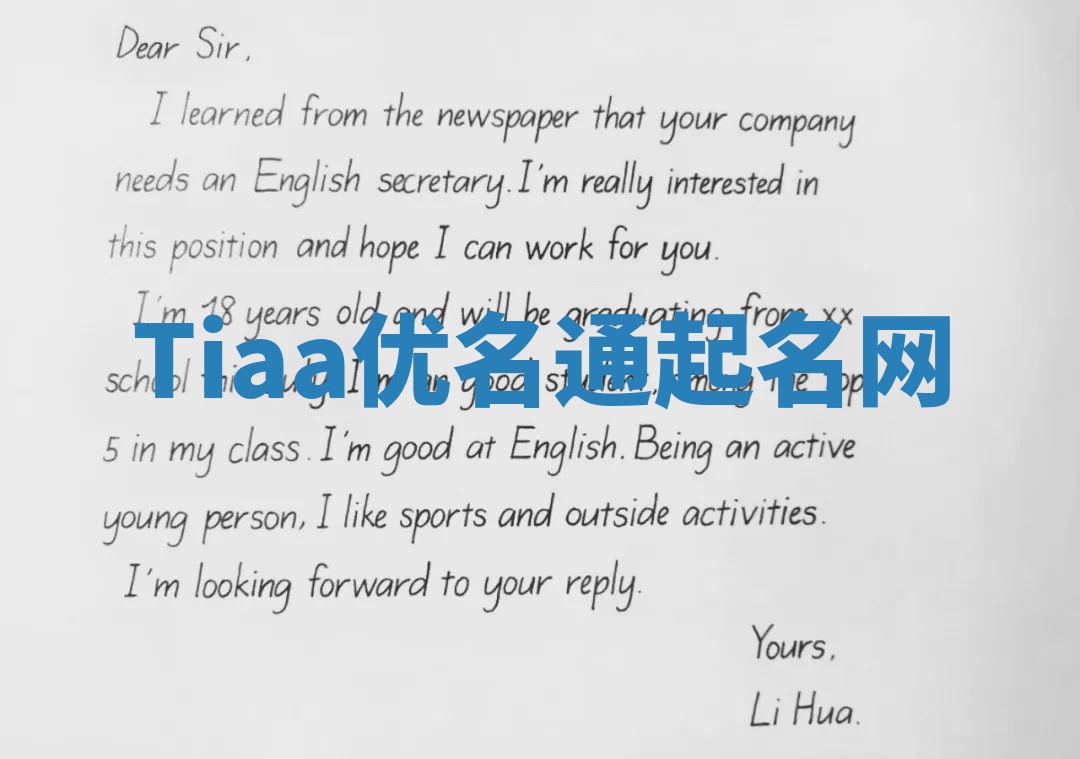 Dear Sir,
I learned from the newspaper that your company
needs an English secretary. I'm really interested in
this position and hope I can work for you.
I'm 18 years old and will be graduating from xx
Tiaa优名通起名网
school this July. I'm an good student, among the top
5 in my class. I'm good at English. Being an active
young person, I like sports and outside activities.
I'm looking forward to your reply.
Yours,
Li Hua.